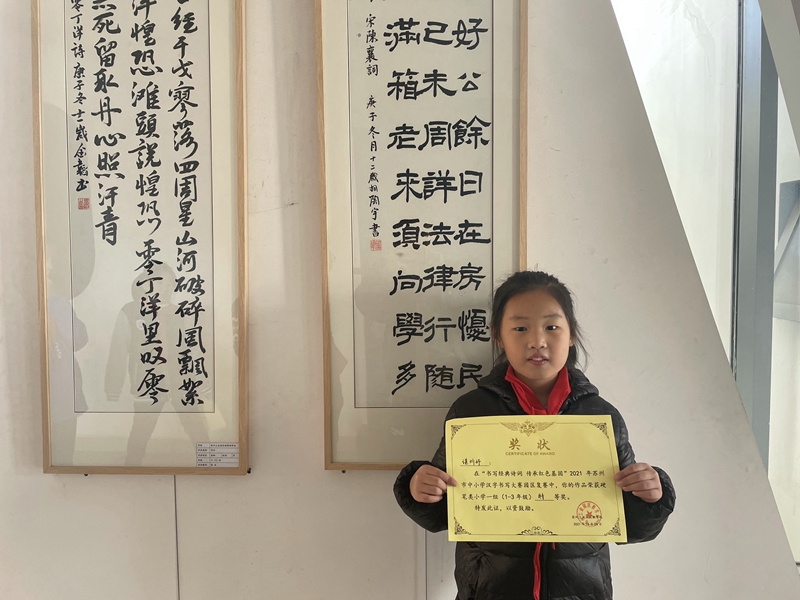 經干戈寥落四周星山河破碎風飄絮
洋惶恐滩頭說惶恐零丁洋里叹零
死留取丹心照汗青
零丁洋詩 庚子冬
好公餘日在房憂民
已未周詳法律行随
滿箱老来須向學多
宋陳襄詞 庚子冬月十二歲
奖状
CERTIFICATE OF AWARD
在“书写经典诗词 传承红色基因”2021 年苏州
市中小学汉字书写大赛园区复赛中，你的作品荣获硬
笔类小学一组（1-3 年级） 特 等奖。
特发此证，以资鼓励。